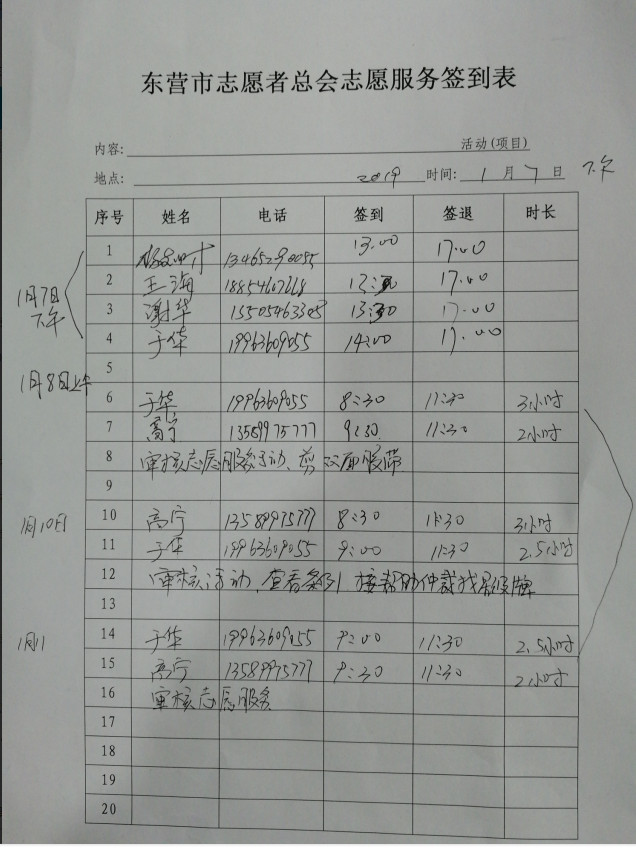 东营市志愿者总会志愿服务签到表
内容: 活动(项目)
地点: 2019 时间: 1 月 7 日 下午
序号 姓名 电话 签到 签退 时长
1月7日下午
1 13465290055 13:00 17:00
2 王海 18854607668 17:00
3 谢华 15505463305 17:00
4 于华 19963609055 14:00 17:00
5
1月8日上午
6 于华 19963609055 8:30 11:30 3小时
7 高宁 13589975777 9:30 11:30 2小时
8 审核志愿服务活动、剪双面胶带
9
1月10日
10 高宁 13589975777 8:30 11:30 3小时
11 于华 19963609055 9:00 11:30 2.5小时
12 审核活动、查看条例、接帮助仲裁找
13
1月11
14 于华 19963609055 9:00 11:30 2.5小时
15 高宁 13589975777 9:30 11:30 2小时
16 审核志愿服务
17
18
19
20